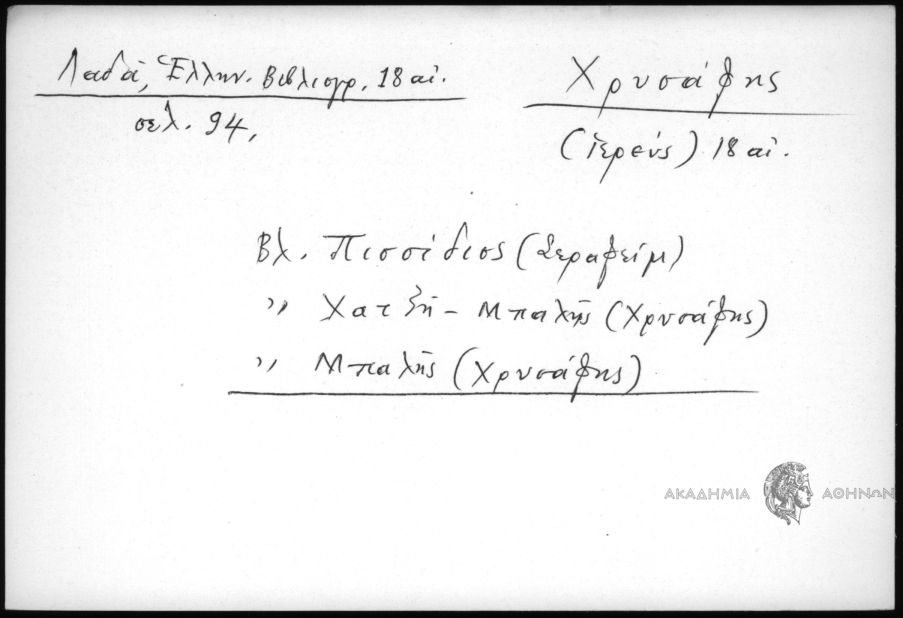 Λαδᾶ, Ἑλλην. Βιβλιογρ. 18 αἰ.
σελ. 94,
Χρυσάφης
(ἱερεύς) 18 αἰ.
Βλ. Πισσίδιος (Σεραφείμ)
〃 Χατζῆ - Μπαλῆς (Χρυσάφης)
〃 Μπαλῆς (Χρυσάφης)
ΑΚΑΔΗΜΙΑ ΑΘΗΝΩΝ